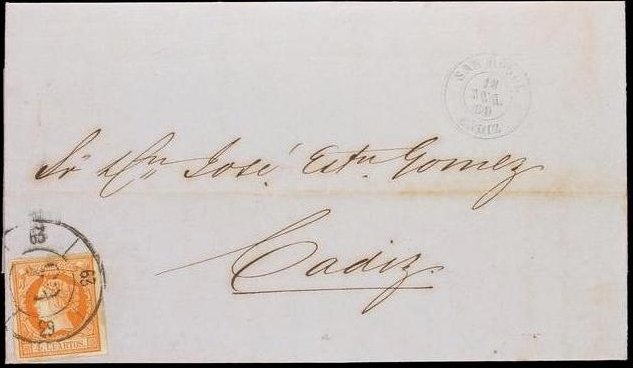 SAN ROQUE
12
60
CADIZ
Sr Dn José Estn Gomez
Cadiz
62
29
4 CUARTOS